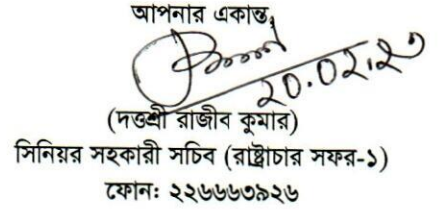 আপনার একান্ত,
২০.০২.২৩
(দত্তশ্রী রাজীব কুমার)
সিনিয়র সহকারী সচিব (রাষ্ট্রাচার সফর-১)
ফোনঃ ২২৬৬৬৩৯২৬